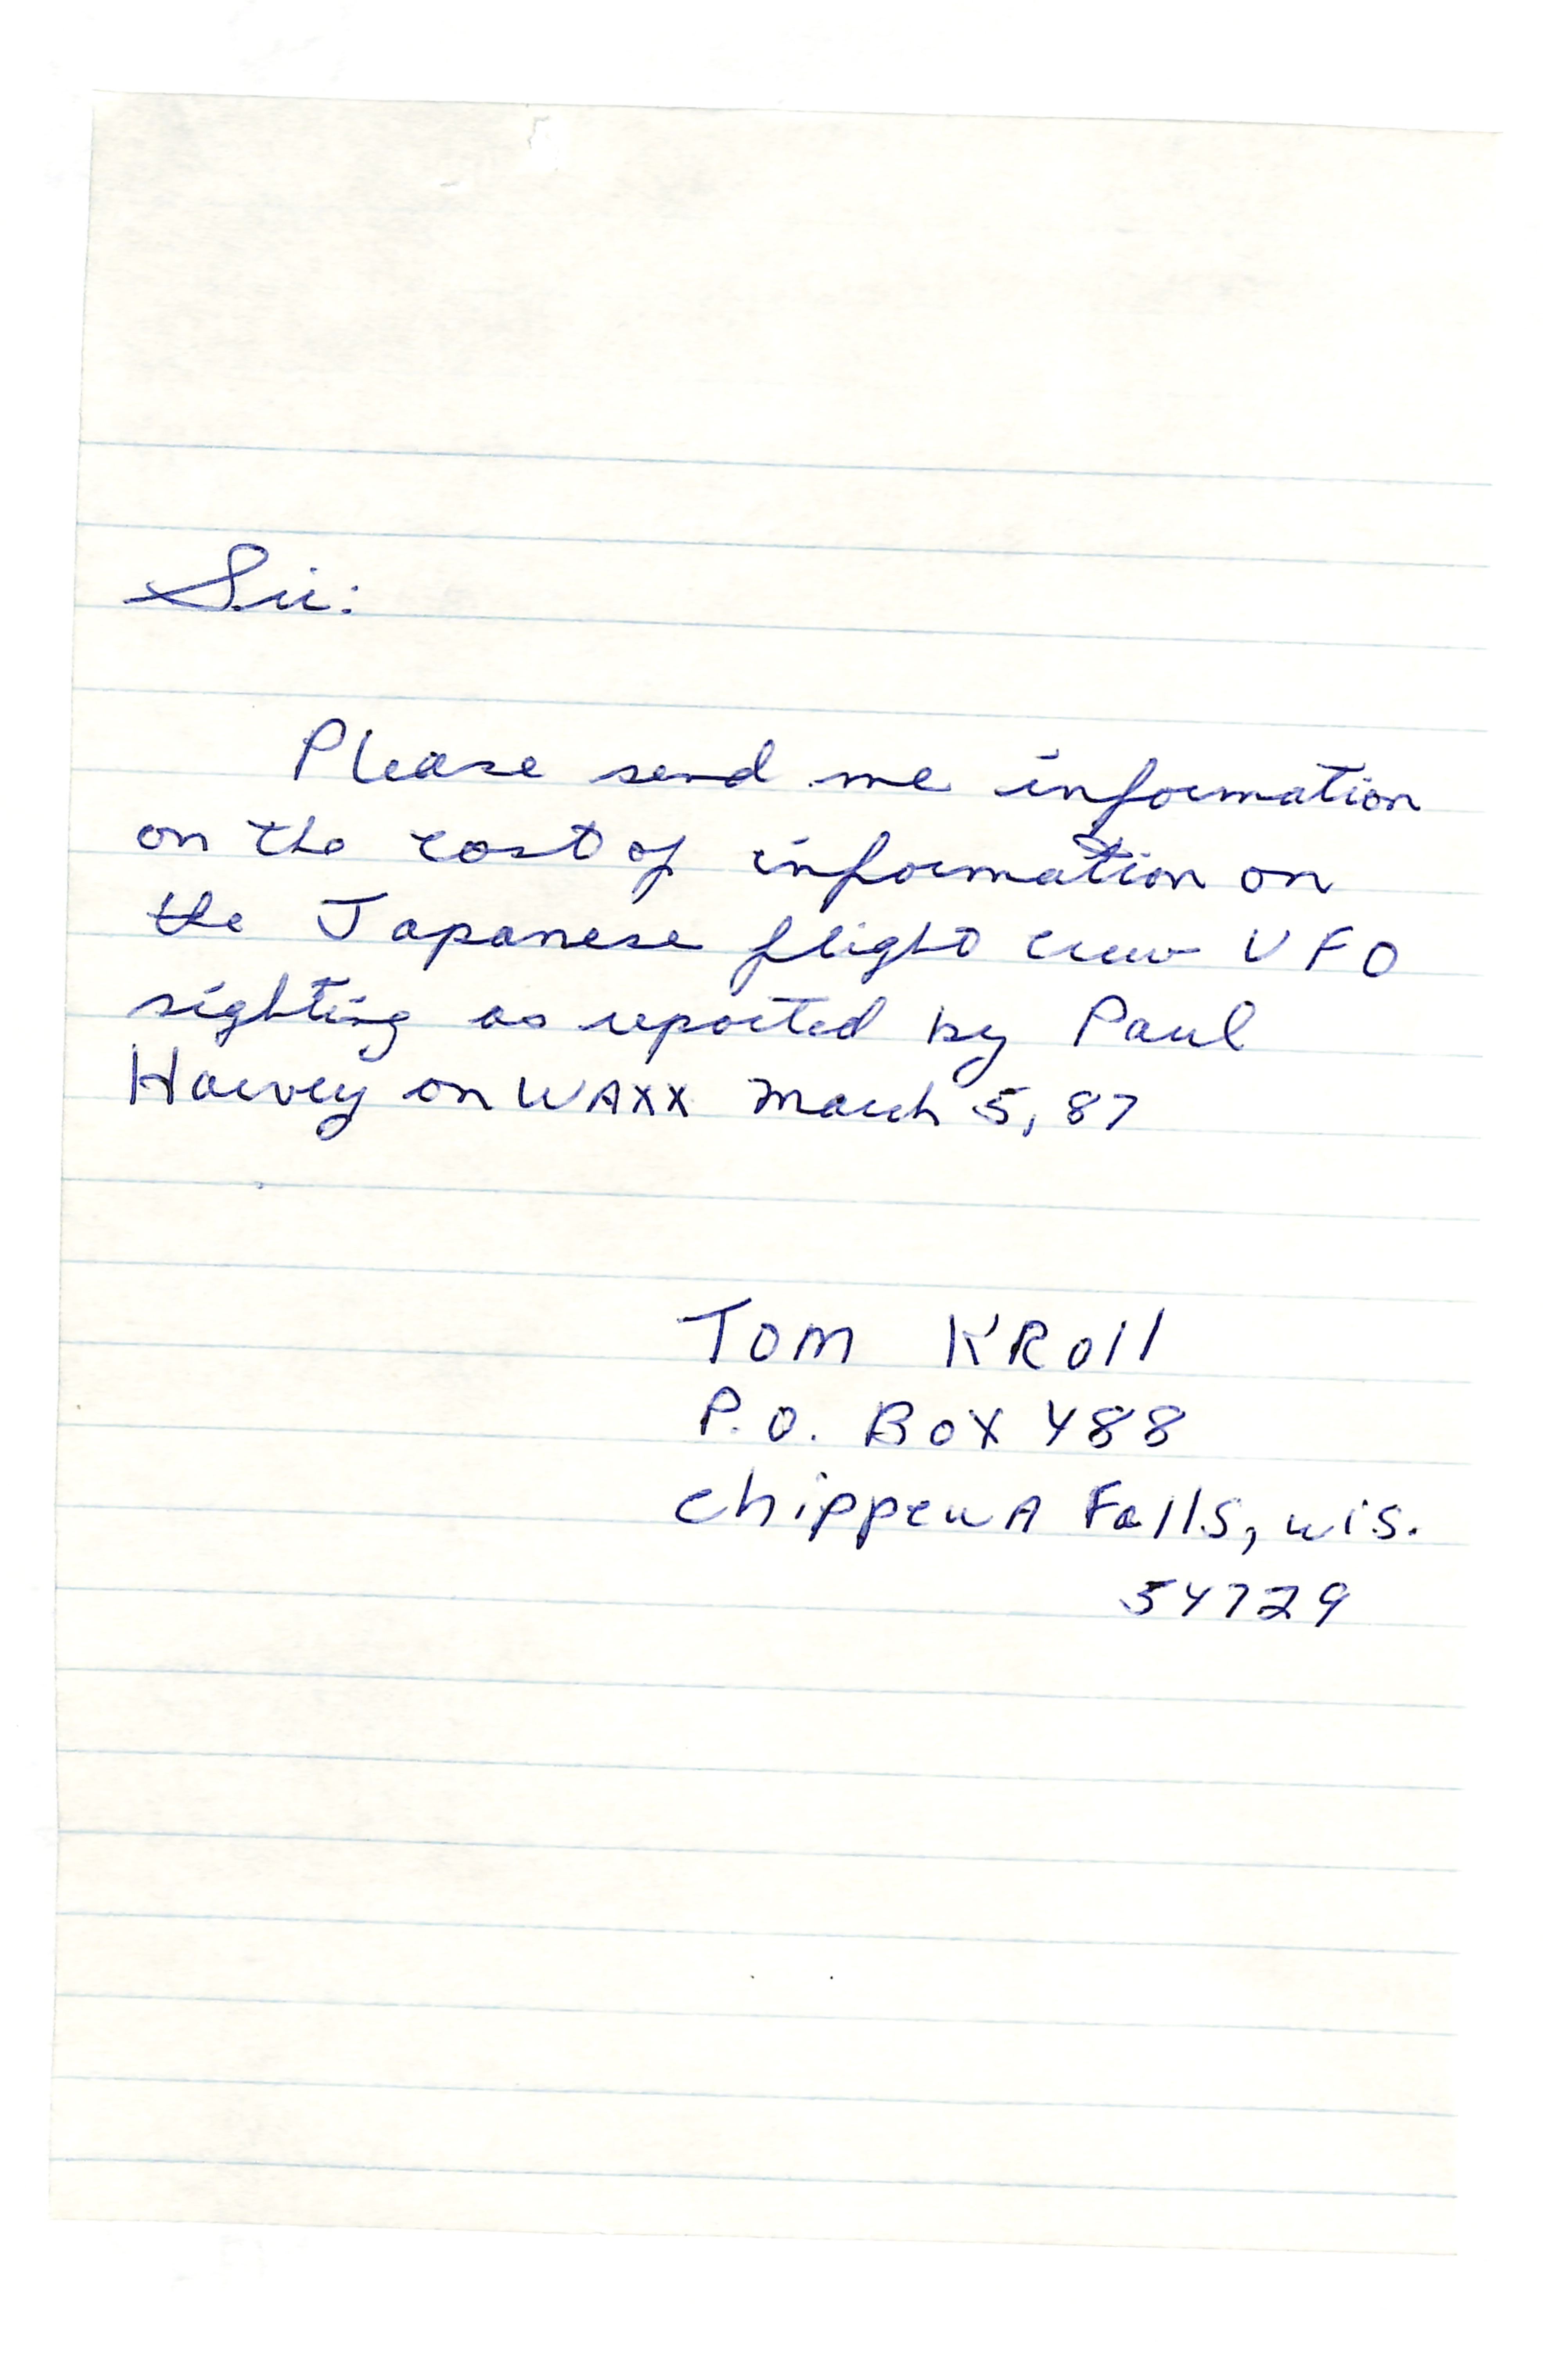 Sir:
Please send me information
on the cost of information on
the Japanese flight crew UFO
sighting as reported by Paul
Harvey on WAXX March 5, 87
TOM KROll
P.O. BOX 488
ChippewA Falls, wis.
54729